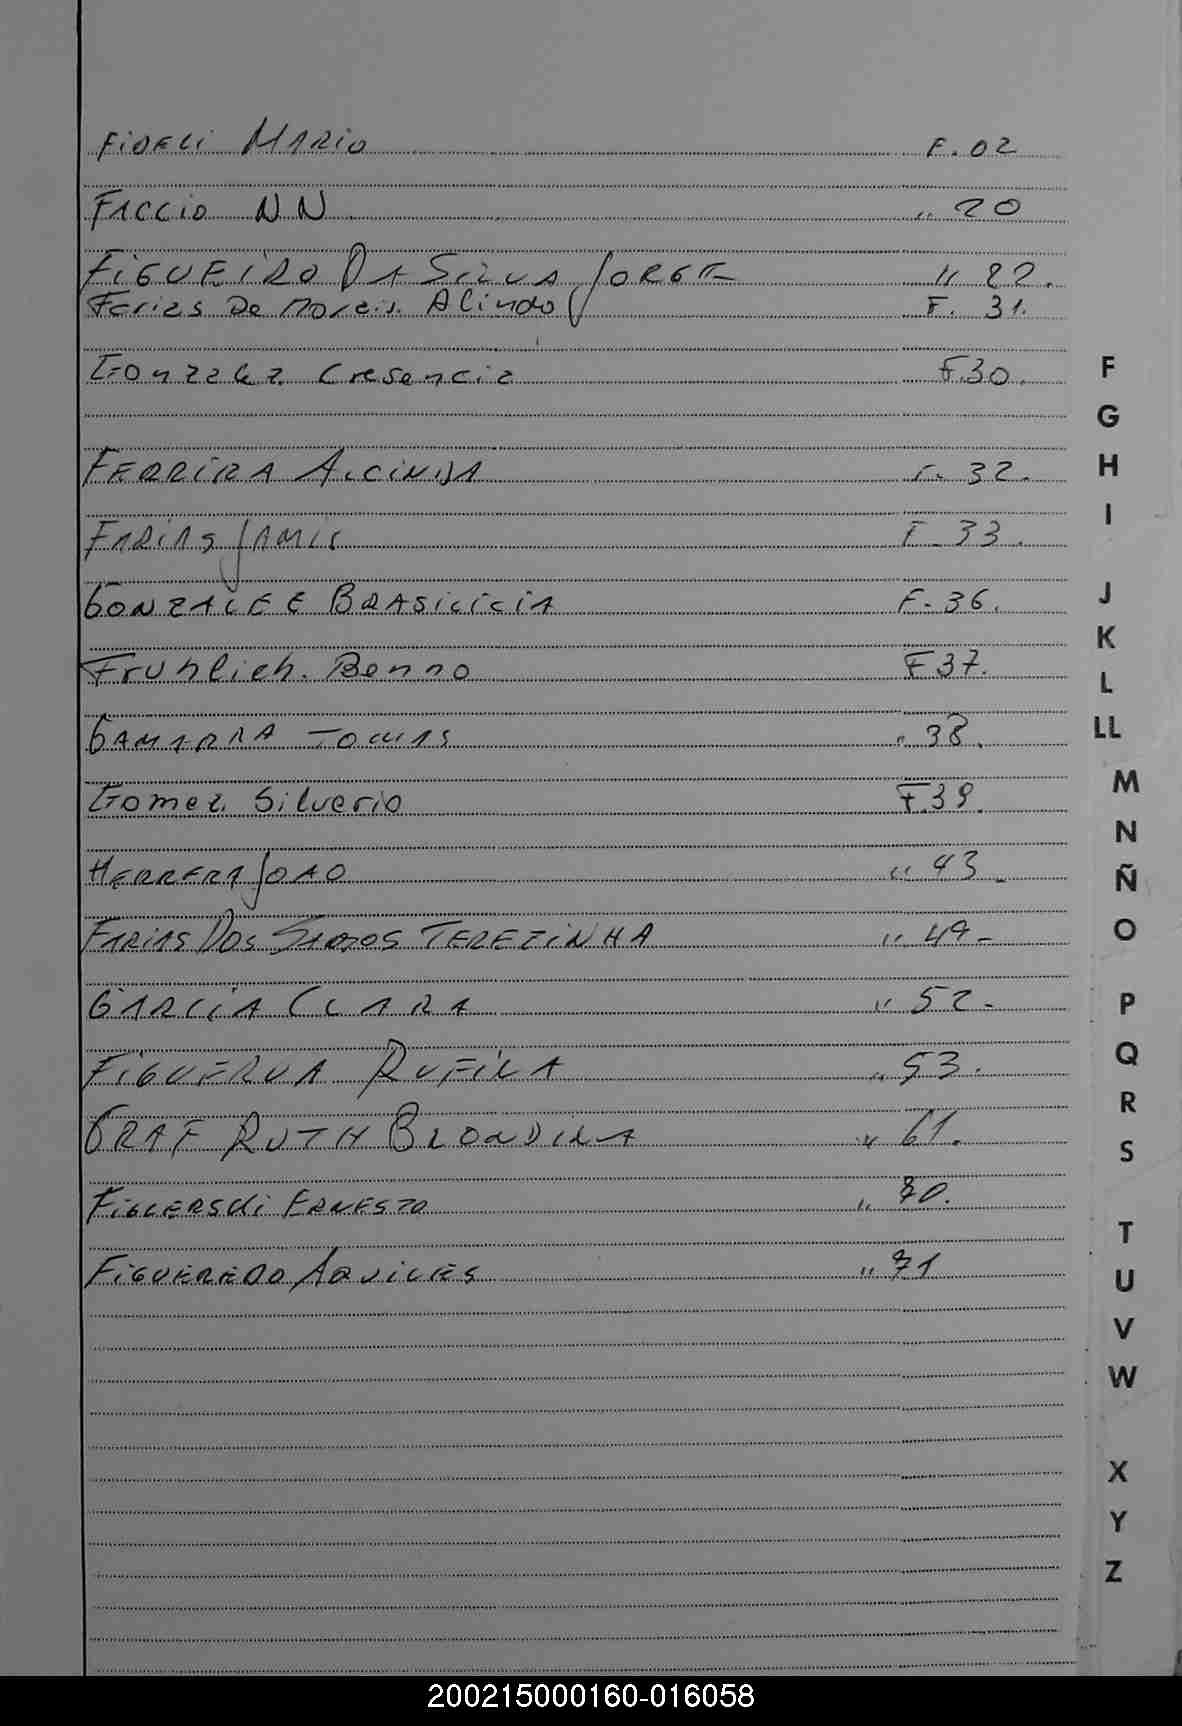 FiDELi MARiO F. 02
FACCiO NN " 20
FiGUEiRO DA SiLVA JORGE " 22.
Farias De Morais. Alindo F. 31.
Gonzalez. Cresencia F.30.
FERRiRA ALCiNDA F. 32.
FARiAS JAMiL F. 33.
GONZALEE BRASiLiCiA F. 36.
Fruhlich. Benno F 37.
GAMARRA TOMAS " 38.
Gomez. Silverio F.39.
HERRERA JOAO " 43.
FARiAS DOS SANTOS TEREZiNHA " 49-
GARCiA CLARA " 52-
FiGUERUA RUFiNA " 53.
GRAF RUTH BLONDiNA " 61.
ERNESTO " 70.
FiGUEREDO AQUiLES " 71
F
G
H
I
J
K
L
LL
M
N
Ñ
O
P
Q
R
S
T
U
V
W
X
Y
Z
200215000160-016058